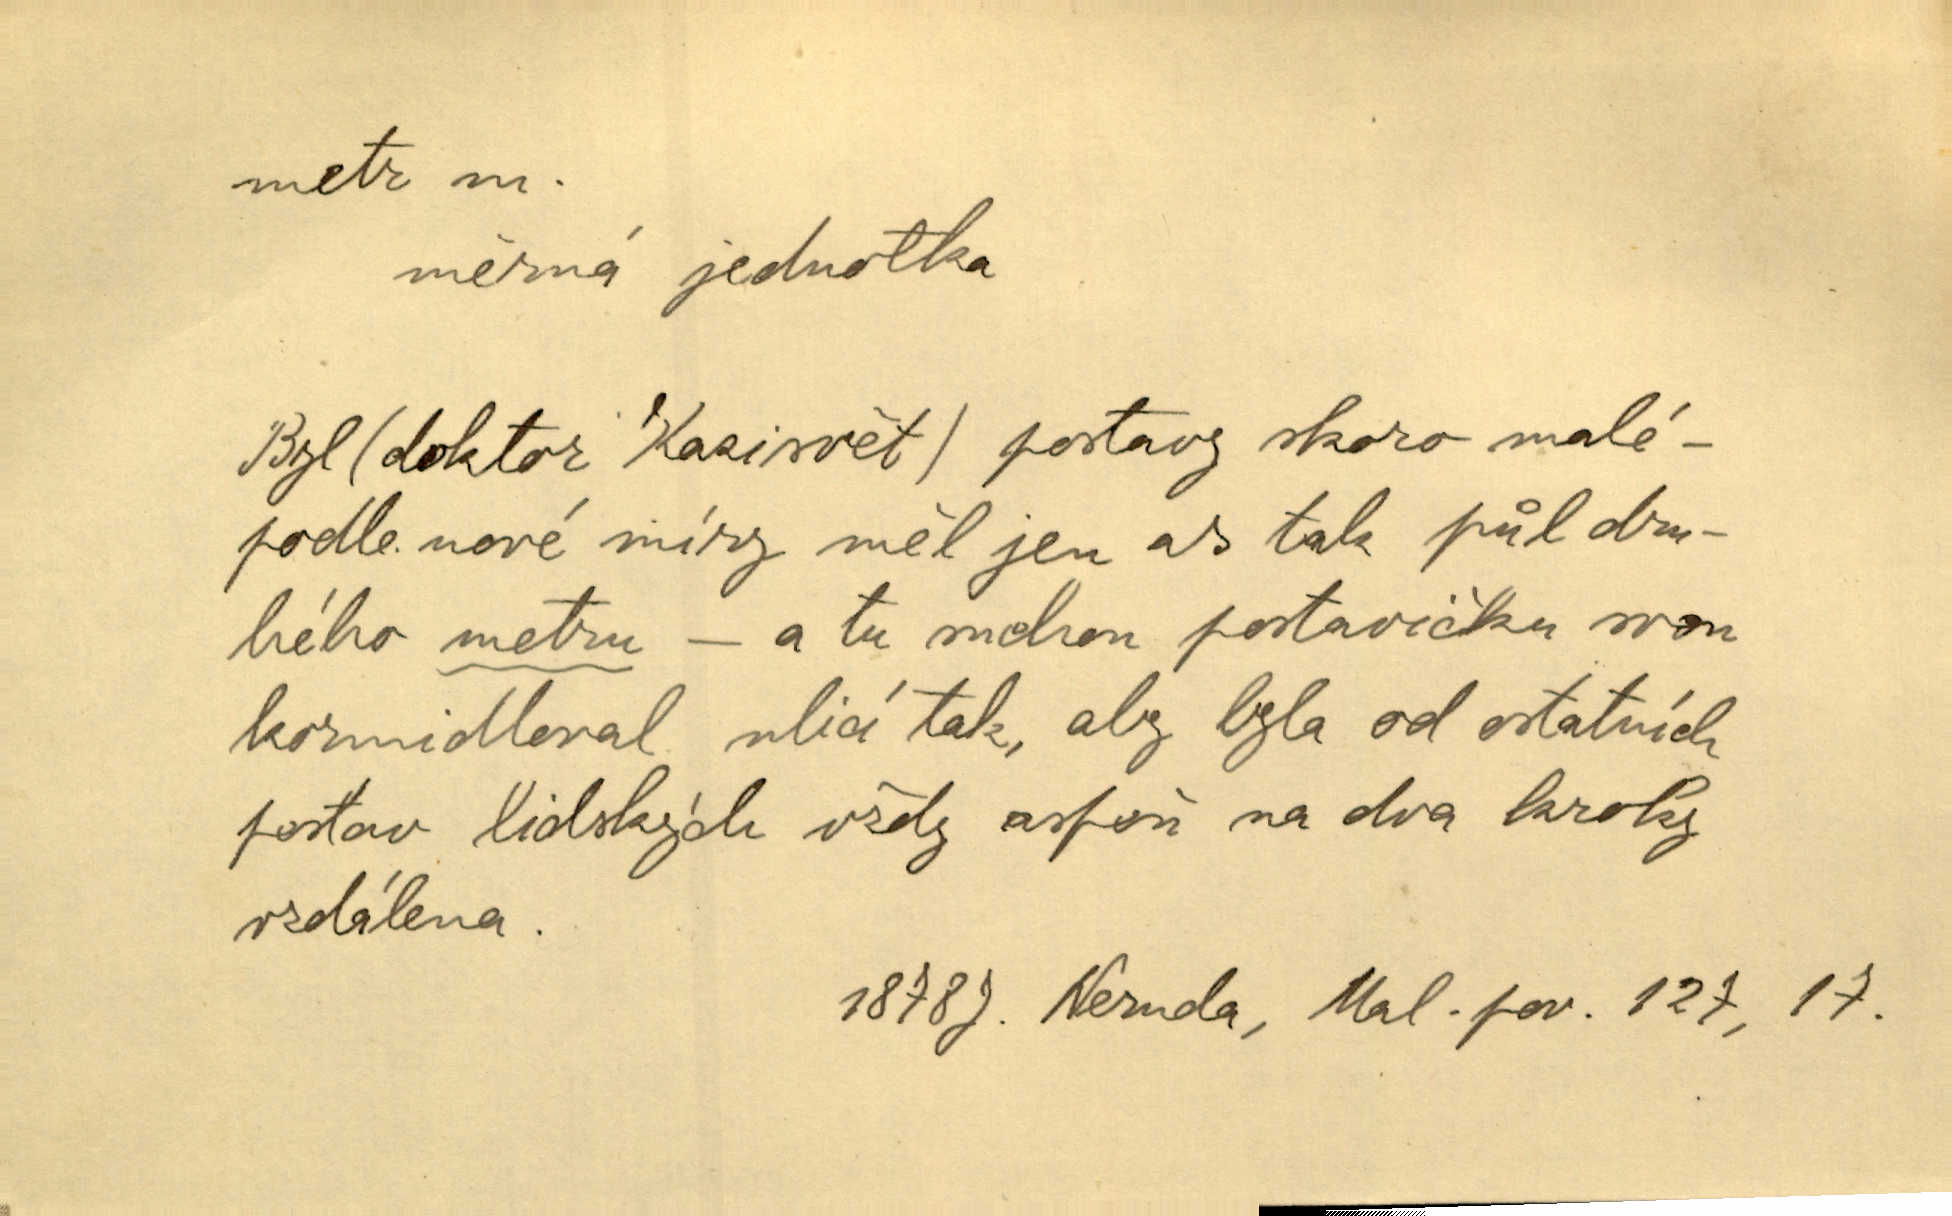 metr m.
měrná jednotka
Byl (doktor Kazisvět) postavy skoro malé –
podle nové míry měl jen as tak půl dru-
hého metru – a tu suchou postavičku svou
kormidloval ulicí tak, aby byla od ostatních
postav lidských vždy aspoň na dva kroky
vzdálena.
1878J. Neruda, Mal. pov. 127, 17.